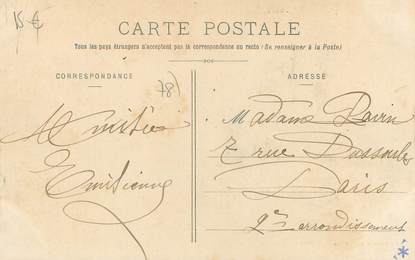 15 €
CARTE POSTALE
Tous les pays étrangers n'acceptent pas la correspondance au recto (Se renseigner à la Poste)
CORRESPONDANCE
ADRESSE
78)
Amitiés
Emilienne
Madame
7 rue Dussoubs
Paris
2e arrondissement